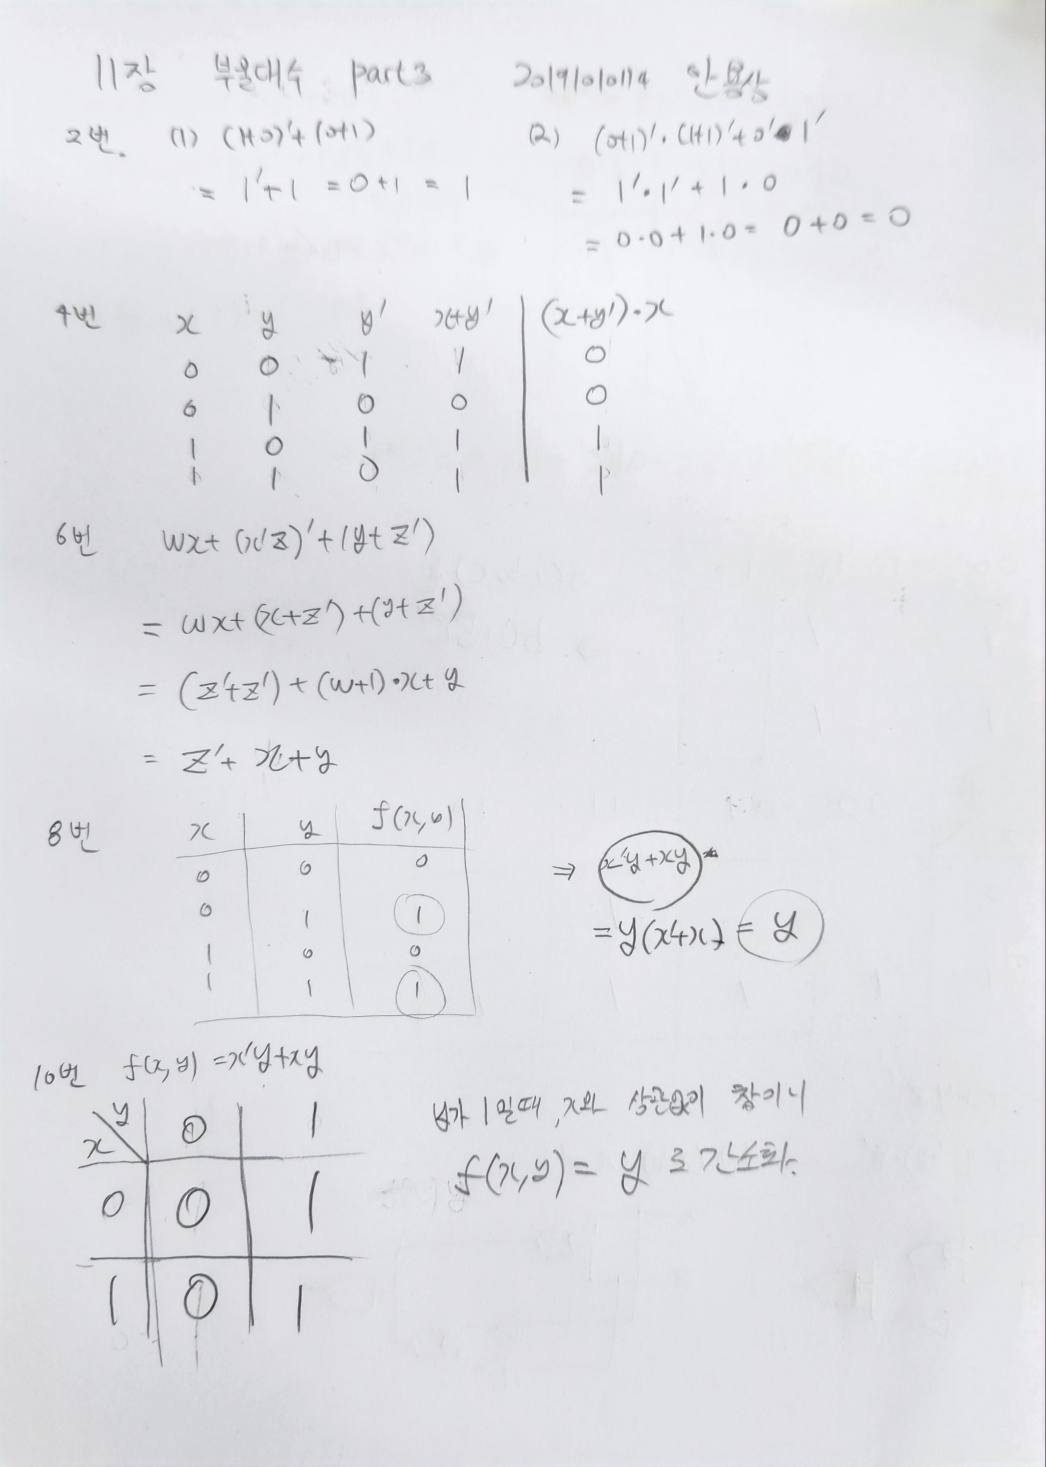 11장 부울대수 part3 2019101014 안용상
2번. (1) (1+0)'+(0+1) (2) (0+1)'·(1+1)'+0'·1'
= 1'+1 = 0+1 = 1 = 1'·1'+1·0
= 0·0+1·0 = 0+0 = 0
4번 x y y' x+y' (x+y')·x
0 0 1 1 0
0 1 0 0 0
1 0 1 1 1
1 1 0 1 1
6번 wx+(x'z)'+(y+z')
= wx+(x+z')+(y+z')
= (z'+z')+(w+1)·x+y
= z'+x+y
8번 x y f(x,y)
0 0 0 ⇒ x'y+xy
0 1 1 =y(x'+x) = y
1 0 0
1 1 1
10번 f(x,y)=x'y+xy
y 0 1 y가 1일때, x와 상관없이 참이니
x
0 0 1 f(x,y)= y 로 간소화.
1 0 1